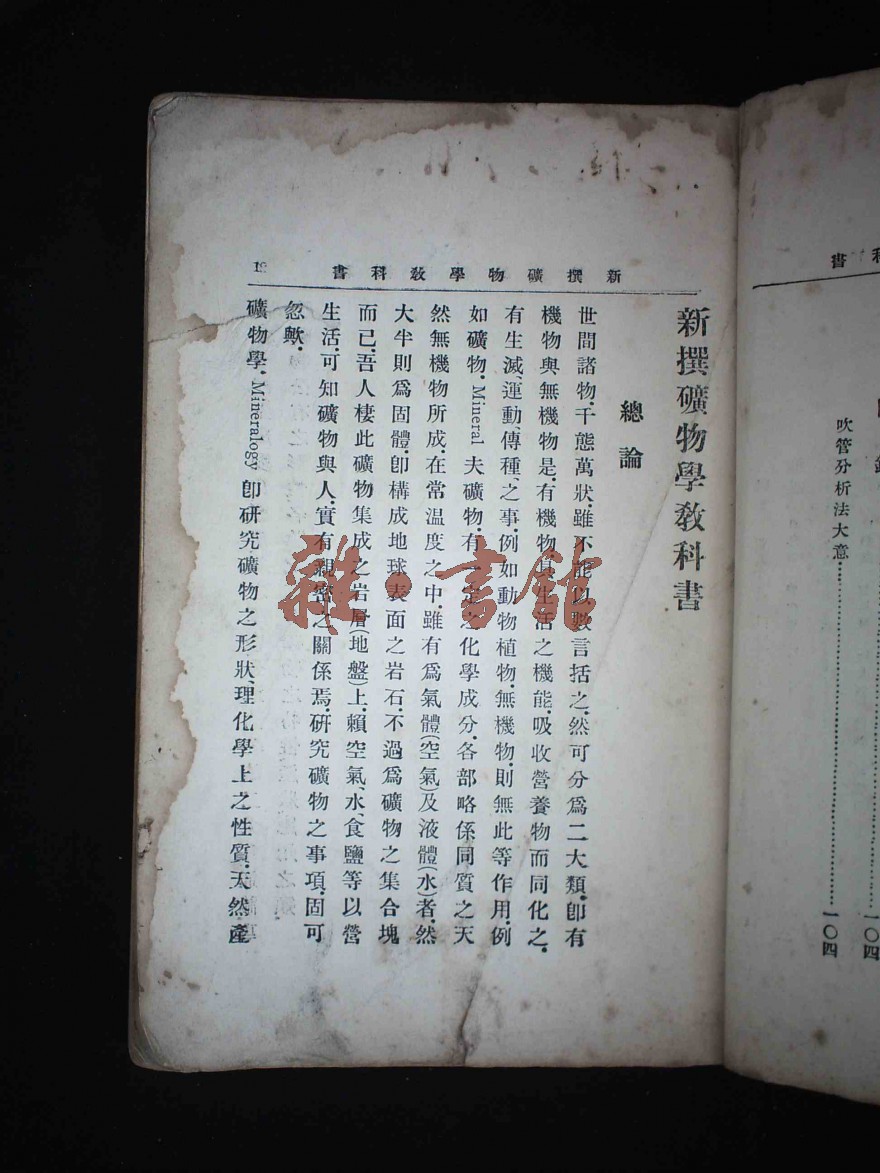 書科
吹管分析法大意⋯⋯⋯⋯⋯⋯一〇四
一〇四
新撰礦物學敎科書
新撰礦物學敎科書
總論
世間諸物.千態萬狀.雖不能以數言括之.然可分爲二大類.卽有
機物與無機物是.有機物.具生活之機能.吸收營養物而同化之.
有生滅、運動、傳種、之事.例如動物植物.無機物.則無此等作用.例
如礦物.Mineral 夫礦物.有一定之化學成分.各部略係同質之天
然無機物所成.在常温度之中.雖有爲氣體(空氣)及液體(水)者.然
大半則爲固體.卽構成地球表面之岩石.不過爲礦物之集合塊
而已.吾人棲此礦物集成之岩層(地盤)上.賴空氣、水、食鹽等以營
生活.可知礦物與人.實有親密之關係焉.硏究礦物之事項.固可
忽歟.
礦物學.Mineralogy 卽硏究礦物之形狀、理化學上之性質.天然產
雜·書館